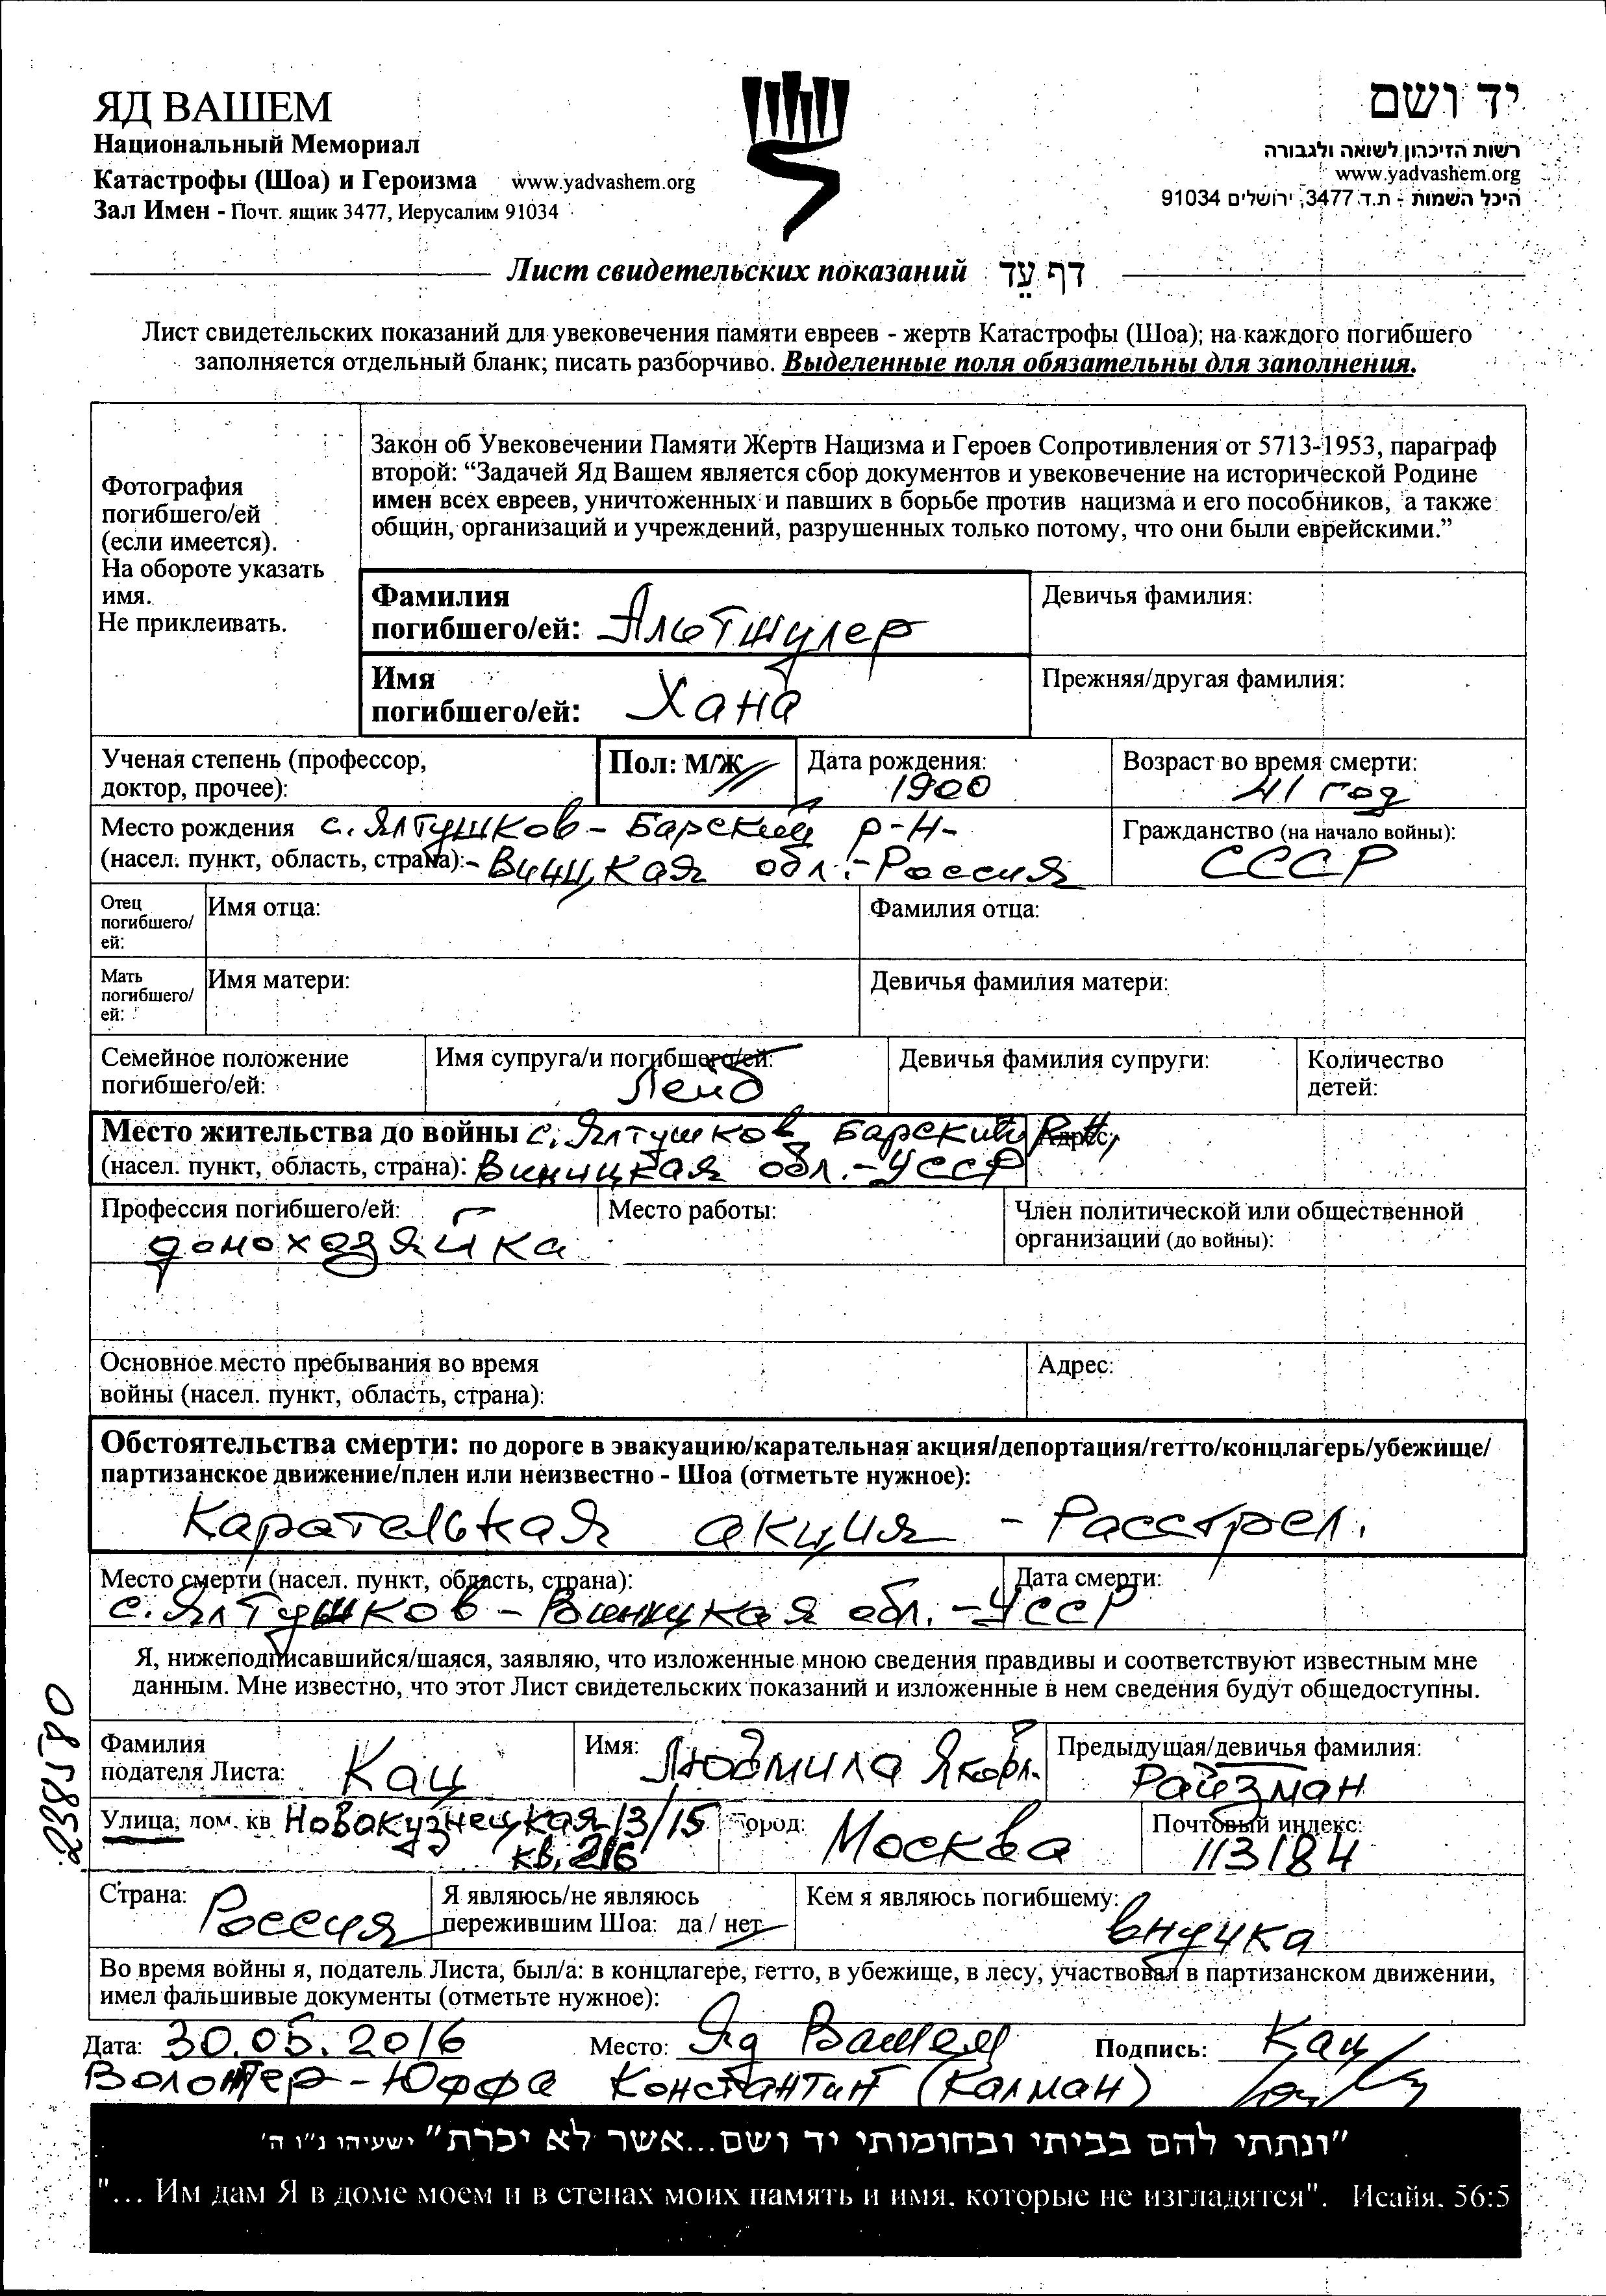 ЯД ВАШЕМ
Национальный Мемориал
Катастрофы (Шоа) и Героизма www.yadvashem.org
Зал Имен - Почт. ящик 3477, Иерусалим 91034
יד ושם
רשות הזיכרון לשואה ולגבורה
www.yadvashem.org
היכל השמות - ת.ד. 3477, ירושלים 91034
Лист свидетельских показаний דף עֵד
Лист свидетельских показаний для увековечения памяти евреев - жертв Катастрофы (Шоа); на каждого погибшего
заполняется отдельный бланк; писать разборчиво. Выделенные поля обязательны для заполнения.
Фотография
погибшего/ей
(если имеется).
На обороте указать
имя.
Не приклеивать.
Закон об Увековечении Памяти Жертв Нацизма и Героев Сопротивления от 5713-1953, параграф
второй: “Задачей Яд Вашем является сбор документов и увековечение на исторической Родине
имен всех евреев, уничтоженных и павших в борьбе против нацизма и его пособников, а также
общин, организаций и учреждений, разрушенных только потому, что они были еврейскими.”
Фамилия
погибшего/ей: Альтшулер
Девичья фамилия:
Имя
погибшего/ей: Хана
Прежняя/другая фамилия:
Ученая степень (профессор,
доктор, прочее):
Пол: М/Ж
Дата рождения:
1900
Возраст во время смерти:
41 год
Место рождения с. Ялтушков - Барский р-н-
(насел. пункт, область, страна):- Виницкая обл. - Россия
Гражданство (на начало войны):
СССР
Отец
погибшего/
ей:
Имя отца:
Фамилия отца:
Мать
погибшего/
ей:
Имя матери:
Девичья фамилия матери:
Семейное положение
погибшего/ей:
Имя супруга/и погибшего/ей:
Лейб
Девичья фамилия супруги:
Количество
детей:
Место жительства до войны с. Ялтушков Барский р-н,
(насел. пункт, область, страна): Виницкая обл. - УССР
Адрес:
Профессия погибшего/ей:
домохозяйка
Место работы:
Член политической или общественной
организации (до войны):
Основное место пребывания во время
войны (насел. пункт, область, страна):
Адрес:
Обстоятельства смерти: по дороге в эвакуацию/карательная акция/депортация/гетто/концлагерь/убежище/
партизанское движение/плен или неизвестно - Шоа (отметьте нужное):
Карателькая акция - Расстрел.
Место смерти (насел. пункт, область, страна):
с. Ялтушков - Винницкая обл. - УССР
Дата смерти:
Я, нижеподписавшийся/шаяся, заявляю, что изложенные мною сведения правдивы и соответствуют известным мне
данным. Мне известно, что этот Лист свидетельских показаний и изложенные в нем сведения будут общедоступны.
Фамилия
подателя Листа: Кац
Имя: Людмила Яковл.
Предыдущая/девичья фамилия:
Райзман
Улица, дом. кв Новокузнецкая 13/15
кв. 216
Город: Москва
Почтовый индекс:
113184
Страна: Россия
Я являюсь/не являюсь
пережившим Шоа: да / нет
Кем я являюсь погибшему:
внучка
Во время войны я, податель Листа, был/а: в концлагере, гетто, в убежище, в лесу, участвовал в партизанском движении,
имел фальшивые документы (отметьте нужное):
Дата: 30.05.2016 Место: Яд Вашем Подпись: Кац
Волонтер - Юффа Константин (Калман)
2385180
"ונתתי להם בביתי ובחומותי יד ושם...אשר לא יכרת" ישעיהו נ"ו ה'
"... Им дам Я в доме моем и в стенах моих память и имя, которые не изгладятся". Исайя, 56:5